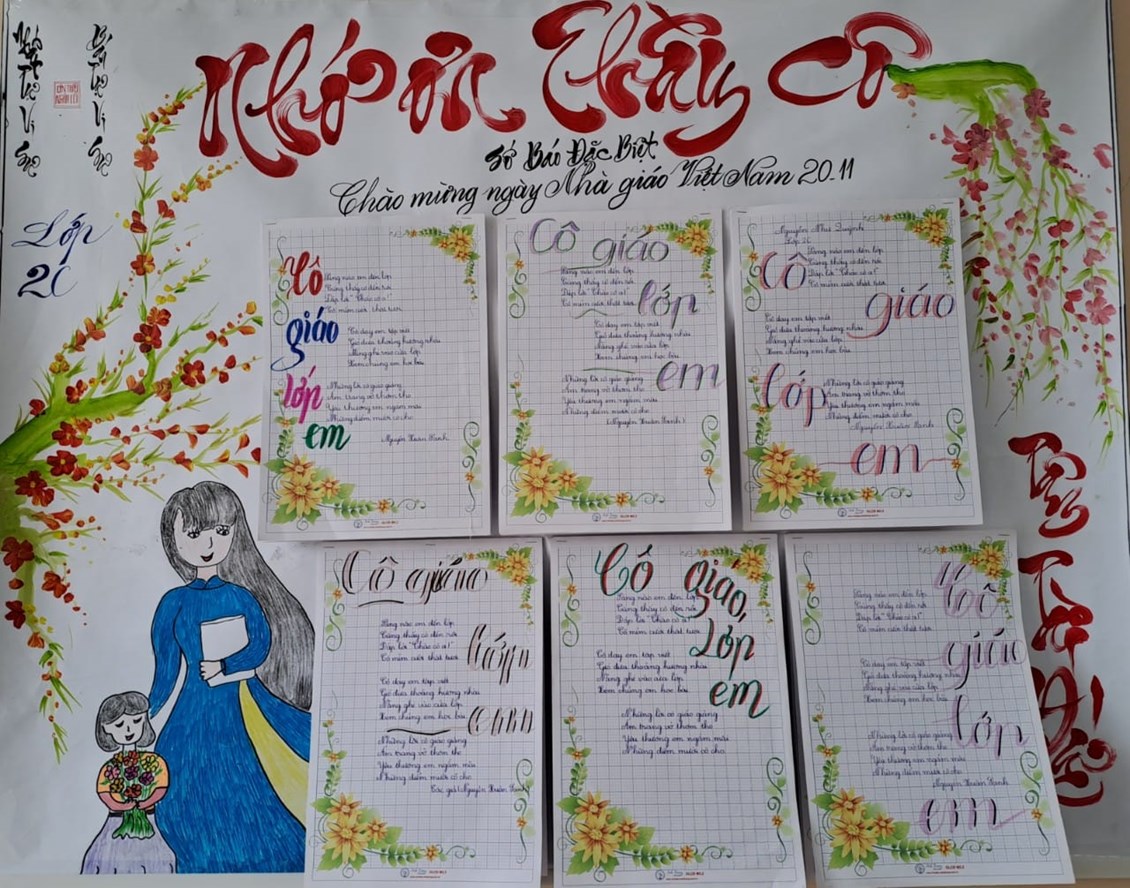 Nhất Tự Vi Sư
Bán Tự Vi Sư
Nhớ ơn Thầy Cô
Số Báo Đặc Biệt
Chào mừng ngày Nhà giáo Việt Nam 20.11
Lớp
2C
Cô
giáo
lớp
em
Sáng nào em đến lớp
Cũng thấy cô đến rồi
Đáp lời "Chào cô ạ!"
Cô mỉm cười thật tươi.
Cô dạy em tập viết
Gió đưa thoảng hương nhài
Nắng ghé vào cửa lớp
Xem chúng em học bài.
Những lời cô giáo giảng
Ấm trang vở thơm tho
Yêu thương em ngắm mãi
Những điểm mười cô cho.
Nguyễn Xuân Sanh
Cô giáo
lớp
em
Sáng nào em đến lớp
Cũng thấy cô đến rồi
Đáp lời "Chào cô ạ!"
Cô mỉm cười thật tươi.
Cô dạy em tập viết
Gió đưa thoảng hương nhài
Nắng ghé vào cửa lớp
Xem chúng em học bài.
Những lời cô giáo giảng
Ấm trang vở thơm tho
Yêu thương em ngắm mãi
Những điểm mười cô cho.
Nguyễn Xuân Sanh
Nguyễn Như Quỳnh
Lớp 2C
Cô
giáo
lớp
em
Sáng nào em đến lớp
Cũng thấy cô đến rồi
Đáp lời "Chào cô ạ!"
Cô mỉm cười thật tươi.
Cô dạy em tập viết
Gió đưa thoảng hương nhài
Nắng ghé vào cửa lớp
Xem chúng em học bài.
Những lời cô giáo giảng
Ấm trang vở thơm tho
Yêu thương em ngắm mãi
Những điểm mười cô cho.
Nguyễn Xuân Sanh
Cô giáo
lớp
em
Sáng nào em đến lớp
Cũng thấy cô đến rồi
Đáp lời "Chào cô ạ!"
Cô mỉm cười thật tươi.
Cô dạy em tập viết
Gió đưa thoảng hương nhài
Nắng ghé vào cửa lớp
Xem chúng em học bài.
Những lời cô giáo giảng
Ấm trang vở thơm tho
Yêu thương em ngắm mãi
Những điểm mười cô cho.
Tác giả Nguyễn Xuân Sanh
Cô giáo,
Lớp
em
Sáng nào em đến lớp
Cũng thấy cô đến rồi
Đáp lời "Chào cô ạ!"
Cô mỉm cười thật tươi.
Cô dạy em tập viết
Gió đưa thoảng hương nhài
Nắng ghé vào cửa lớp
Xem chúng em học bài.
Những lời cô giáo giảng
Ấm trang vở thơm tho
Yêu thương em ngắm mãi
Những điểm mười cô cho.
Cô
giáo
lớp
em
Sáng nào em đến lớp
Cũng thấy cô đến rồi
Đáp lời "Chào cô ạ!"
Cô mỉm cười thật tươi.
Cô dạy em tập viết
Gió đưa thoảng hương nhài
Nắng ghé vào cửa lớp
Xem chúng em học bài.
Những lời cô giáo giảng
Ấm trang vở thơm tho
Yêu thương em ngắm mãi
Những điểm mười cô cho.
Nguyễn Xuân Sanh